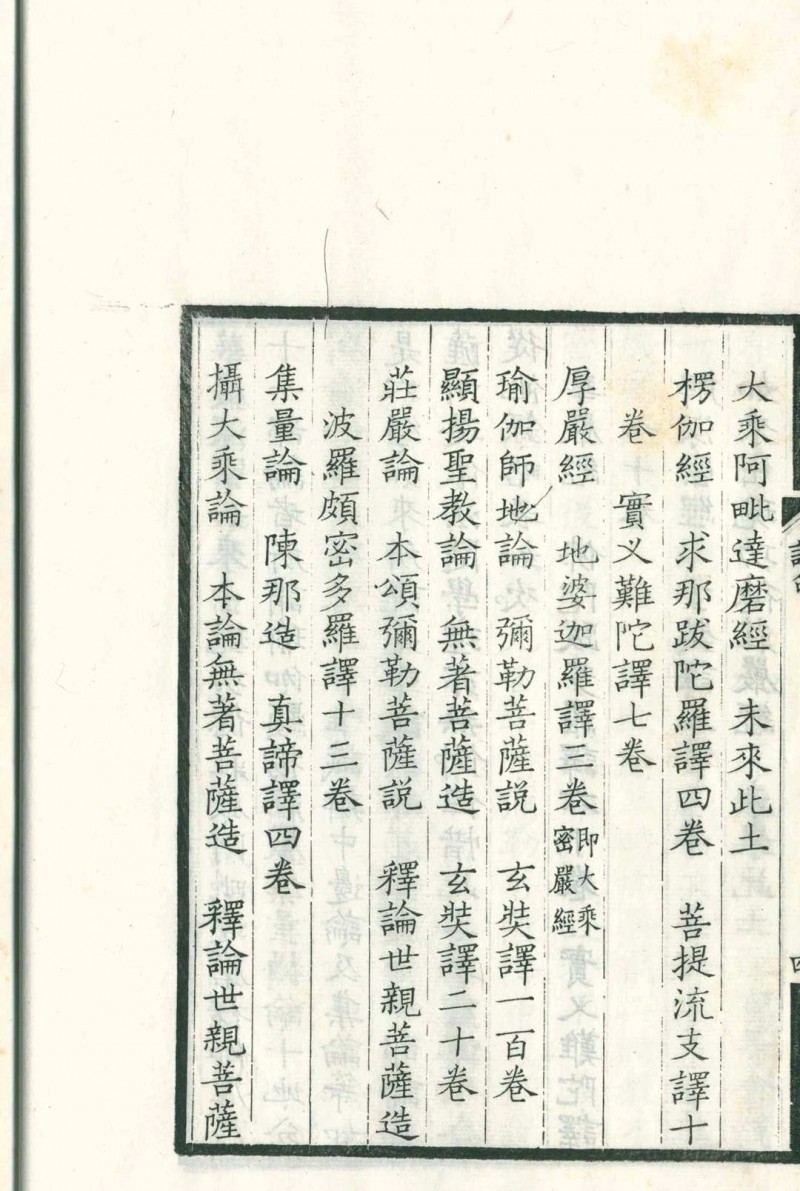 大乘阿毗達磨經　未來此土
楞伽經　求那跋陀羅譯四卷　菩提流支譯十
卷　實叉難陀譯七卷
厚嚴經　地婆迦羅譯三卷即大乘密嚴經
瑜伽師地論　彌勒菩薩説　玄奘譯一百卷
顯揚聖教論　無著菩薩造　玄奘譯二十卷
莊嚴論　本頌彌勒菩薩説　釋論世親菩薩造
波羅頗密多羅譯十三卷
集量論　陳那造　真諦譯四卷
攝大乘論　本論無著菩薩造　釋論世親菩薩